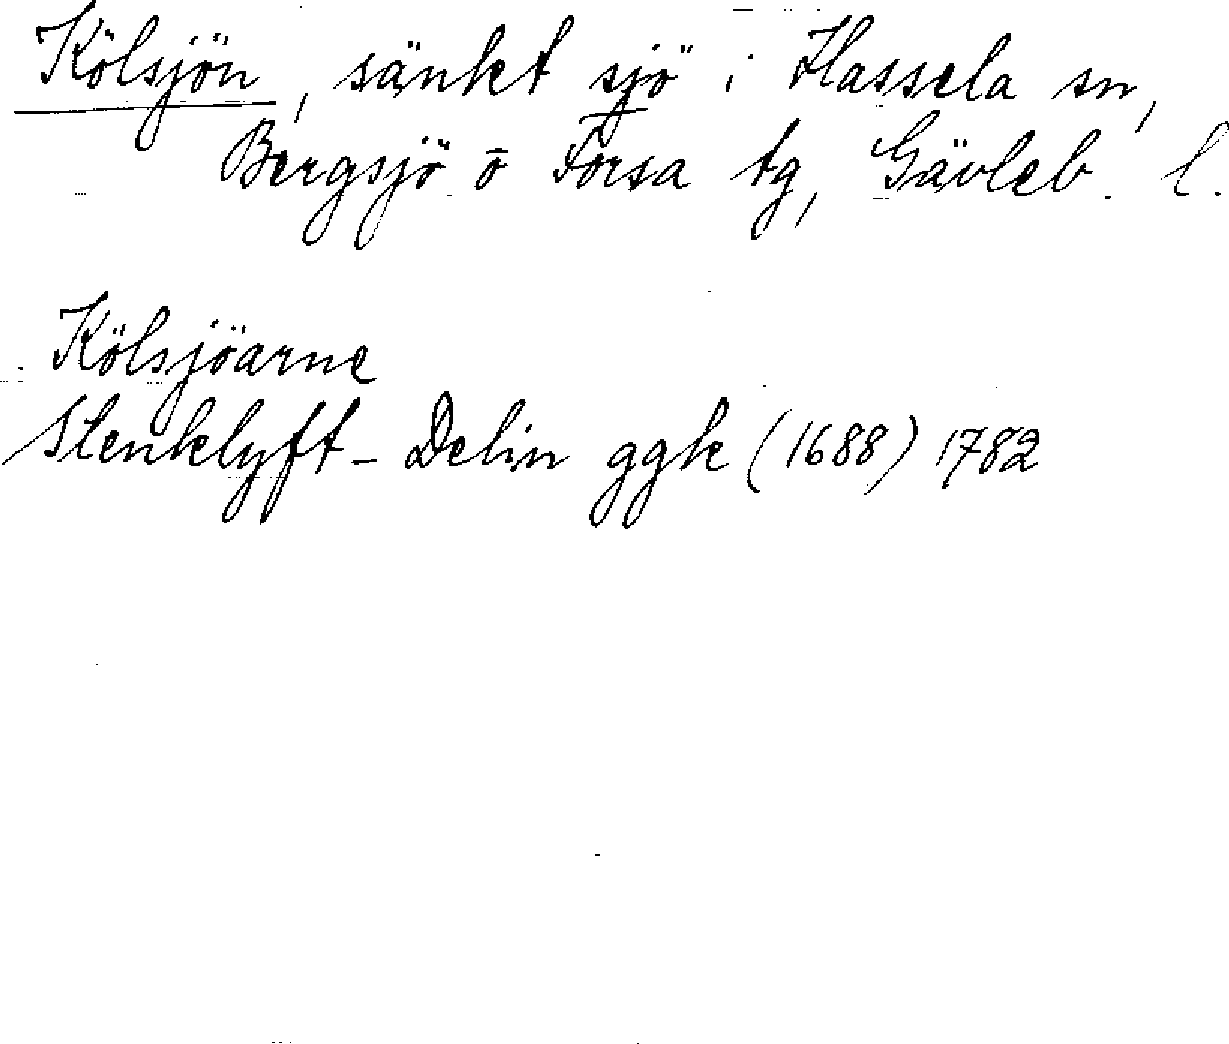 Kölsjön, sänkt sjö i Hassela sn,
Bergsjö o Forsa tg, Gävleb. l.
Kölsjöarne
Stenklyft-Delin ggk (1688) 1782